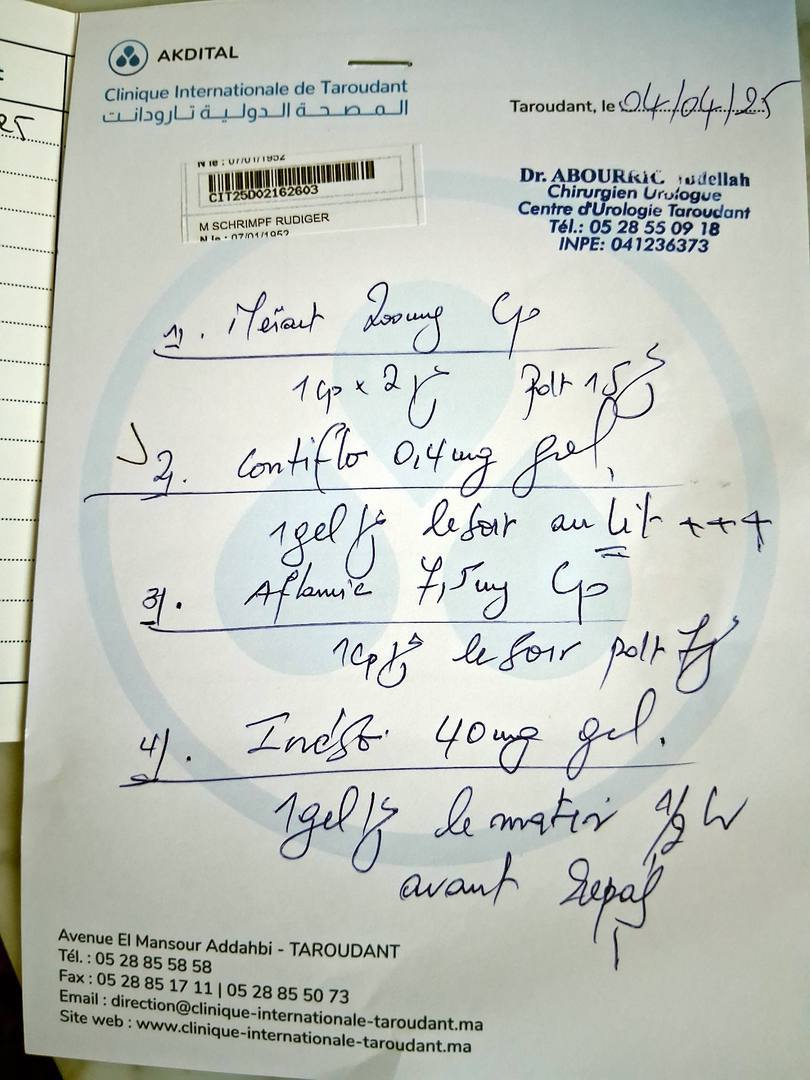 25
AKDITAL
Clinique Internationale de Taroudant
المصحة الدولية تارودانت
Taroudant, le 04/04/25
N le : 07/01/1952
CIT25D02162603
M SCHRIMPF RUDIGER
N le : 07/01/1952
Dr. ABOURRIC
Chirurgien Urologue
Centre d'Urologie Taroudant
Tél.: 05 28 55 09 18
INPE: 041236373
1). 200mg Cp
1 cp x 2 /j pdt 15j
2). Contiflo 0,4mg gel.
1gel/j le soir au lit +++
3). Aflamic 7,5mg Cp
1cp/j le soir pdt 7j
4). 40mg gel.
1gel/j le matin 1/2 h
avant repas
Avenue El Mansour Addahbi - TAROUDANT
Tél. : 05 28 85 58 58
Fax : 05 28 85 17 11 | 05 28 85 50 73
Email : direction@clinique-internationale-taroudant.ma
Site web : www.clinique-internationale-taroudant.ma